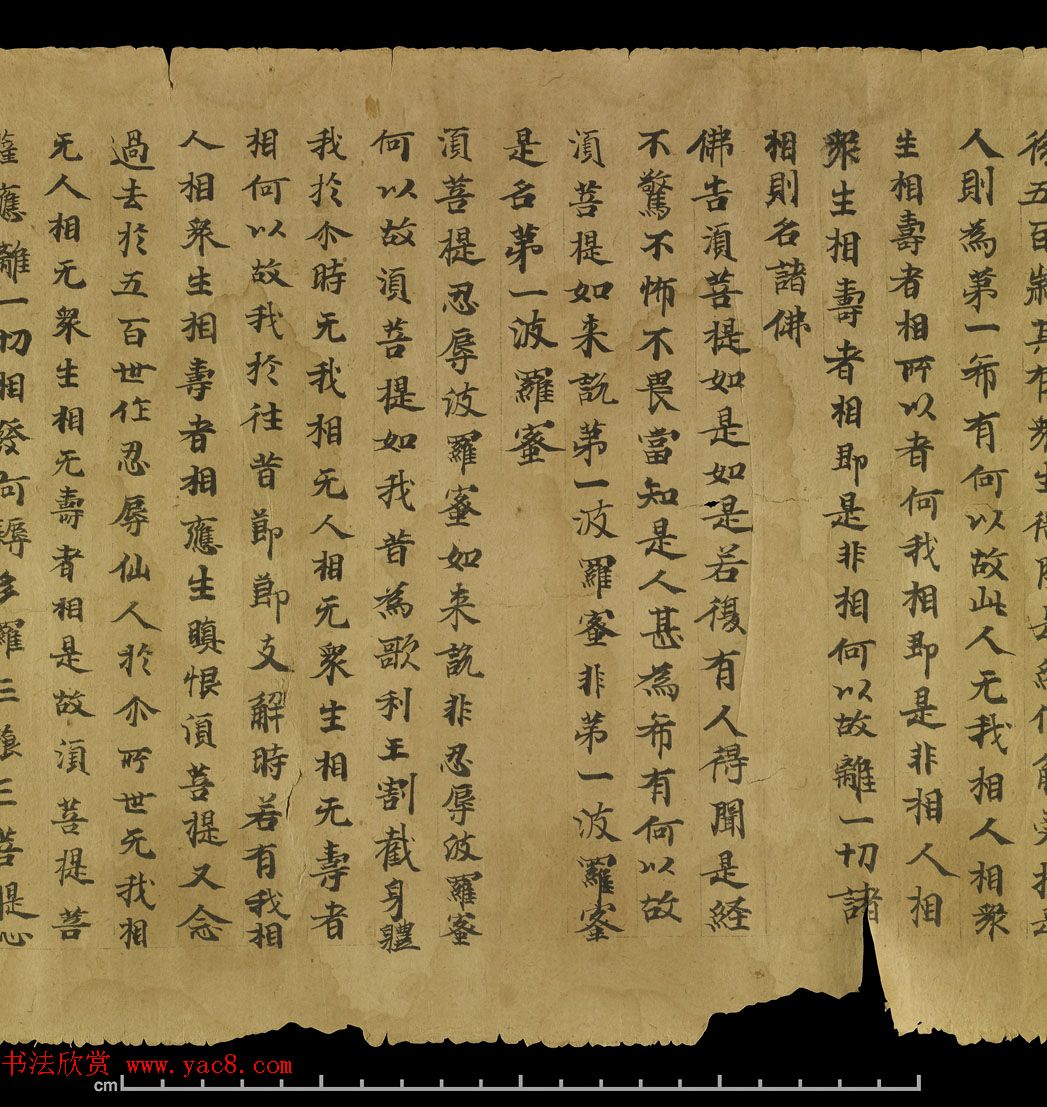 後五百歲其有衆生得経信解受持是
人則為第一希有何以故此人无我相人相衆
生相壽者相所以者何我相即是非相人相
衆生相壽者相即是非相何以故離一切諸
相則名諸佛
佛告湏菩提如是如是若復有人得聞是経
不驚不怖不畏當知是人甚為希有何以故
湏菩提如来說第一波羅蜜非第一波羅蜜
是名第一波羅蜜
湏菩提忍辱波羅蜜如来說非忍辱波羅蜜
何以故湏菩提如我昔為歌利王割截身體
我於尒時无我相无人相无衆生相无壽者
相何以故我於往昔節節支解時若有我相
人相衆生相壽者相應生瞋恨湏菩提又念
過去於五百世作忍辱仙人於尒所世无我相
无人相无衆生相无壽者相是故湏菩提菩
薩應離一切相發阿耨多羅三藐三菩提心
书法欣赏 www.yac8.com
cm